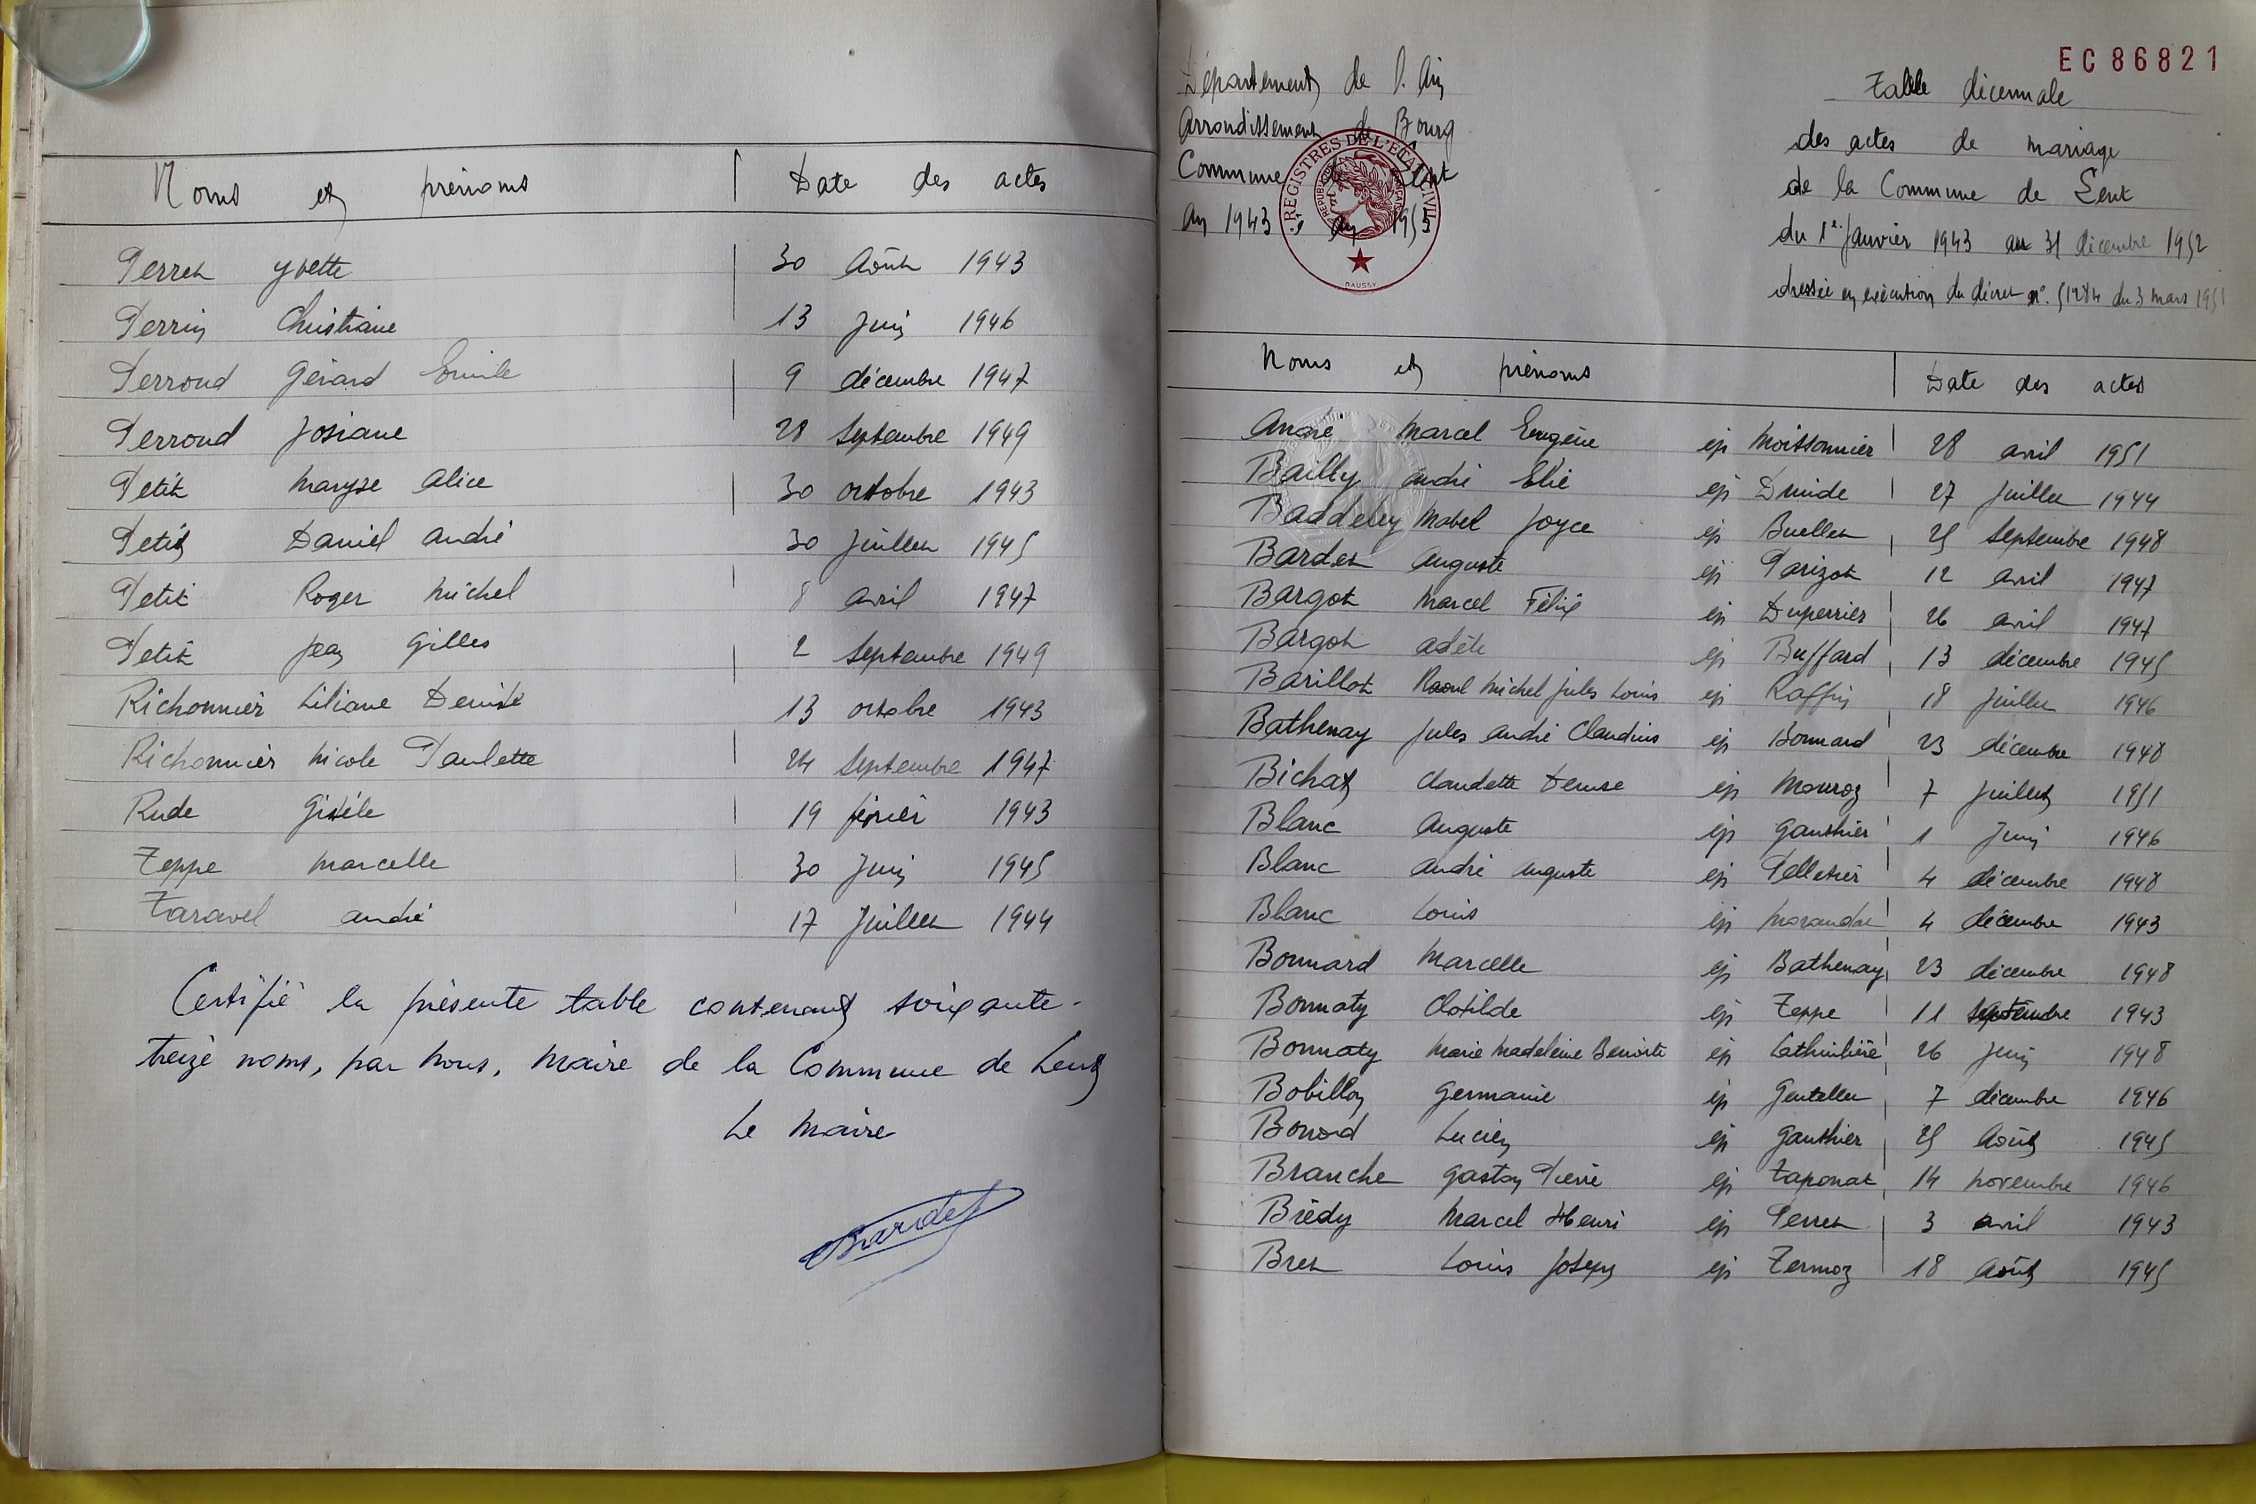 Noms et prénoms Date des actes
Perret Yvette 30 Août 1943
Perrin Christiane 13 Juin 1946
Perroud Gérard Emile 9 décembre 1947
Perroud Josiane 28 Septembre 1949
Petit Maryse Alice 30 octobre 1943
Petit Daniel André 30 Juillet 1945
Petit Roger Michel 8 Avril 1947
Petit Jean Gilles 2 Septembre 1949
Richonnier Liliane Denise 13 octobre 1943
Richonnier Nicole Paulette 24 Septembre 1947
Rude Gisèle 19 février 1943
Teppe Marcelle 30 Juin 1945
Taravel André 17 Juillet 1944
Certifié la présente table contenant soixante-
treize noms, par Nous, Maire de la Commune de Lent
Le Maire
Bardet
EC 86821
Département de l'Ain
Arrondissement de Bourg
Commune de Lent
An 1943 à An 1953
REGISTRES DE L'ETAT CIVIL
DAUSSY
Table décennale
des actes de mariage
de la Commune de Lent
du 1er Janvier 1943 au 31 décembre 1952
dressée en exécution du décret n°. 51284 du 3 mars 1951
Noms et prénoms Date des actes
André Marcel Eugène ép Moissonnier 28 avril 1951
Bailly André Elie ép Druide 27 Juillet 1944
Baddeley Mabel Joyce ép Buellet 25 Septembre 1948
Bardet Auguste ép Parizot 12 avril 1947
Bargot Marcel Félix ép Duperrier 26 avril 1947
Bargot Adèle ép Buffard 13 décembre 1945
Barillot Raoul Michel Jules Louis ép Raffin 18 Juillet 1946
Bathenay Jules André Claudius ép Bonnard 23 décembre 1948
Bichat Claudette Denise ép Mouroz 7 Juillet 1951
Blanc Auguste ép Gauthier 1 Juin 1946
Blanc André Auguste ép Pelletier 4 décembre 1948
Blanc Louis ép 4 décembre 1943
Bonnard Marcelle ép Bathenay 23 décembre 1948
Bonnaty Clotilde ép Teppe 11 Septembre 1943
Bonnaty Marie Madeleine Benoite ép 26 Juin 1948
Bobillon Germaine ép 7 décembre 1946
Bonod Lucien ép Gauthier 25 Août 1945
Branche Gaston Pierre ép Taponat 14 Novembre 1946
Brédy Marcel Henri ép Perret 3 avril 1943
Bret Louis Joseph ép Termoz 18 Août 1945